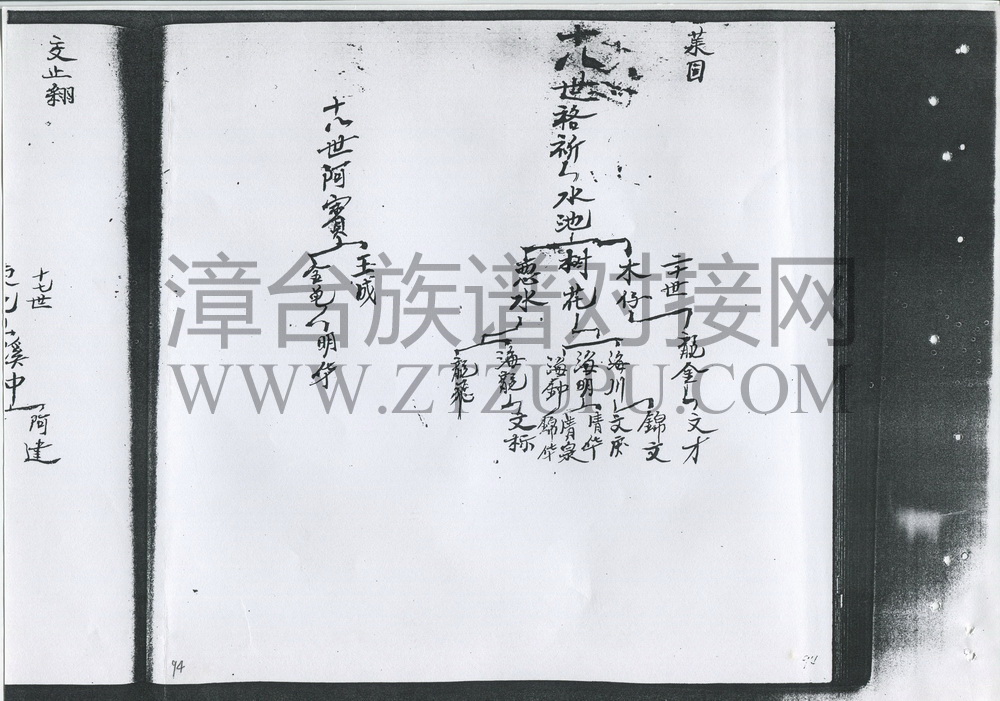 十八世格祈
水池
木仔
树花
惠水
二十世
龍金
文才
錦文
海川
文康
海明
清华
清泉
海鈡
錦华
海龍
文标
龍飛
十八世阿賓
玉成
金龟
明华
交止翱
十七世
溪中
阿建
94
漳台族谱对接网
WWW.ZTZUPU.COM